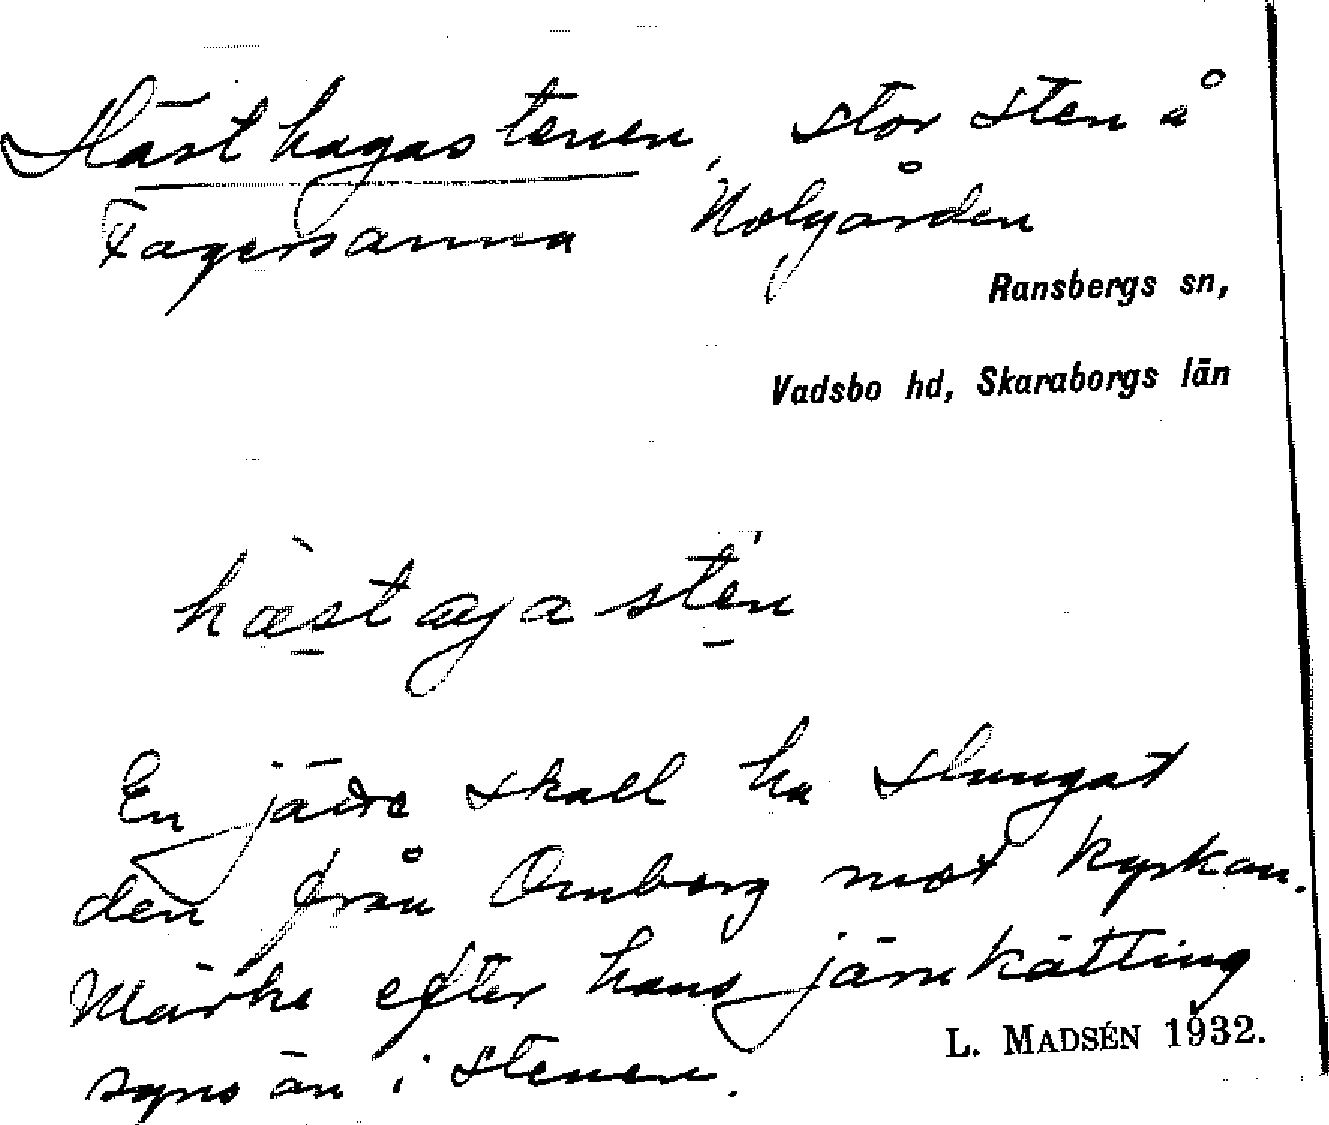 Hästhagastenen, stor sten å
Fagersanna Nolgården
Ransbergs sn,
Vadsbo hd, Skaraborgs län
hæstagasten
En jätte skall ha slungat
den från Ornborg mot kyrkan.
Märke efter hans järnkätting
syns än i stenen.
L. MADSÉN 1932.